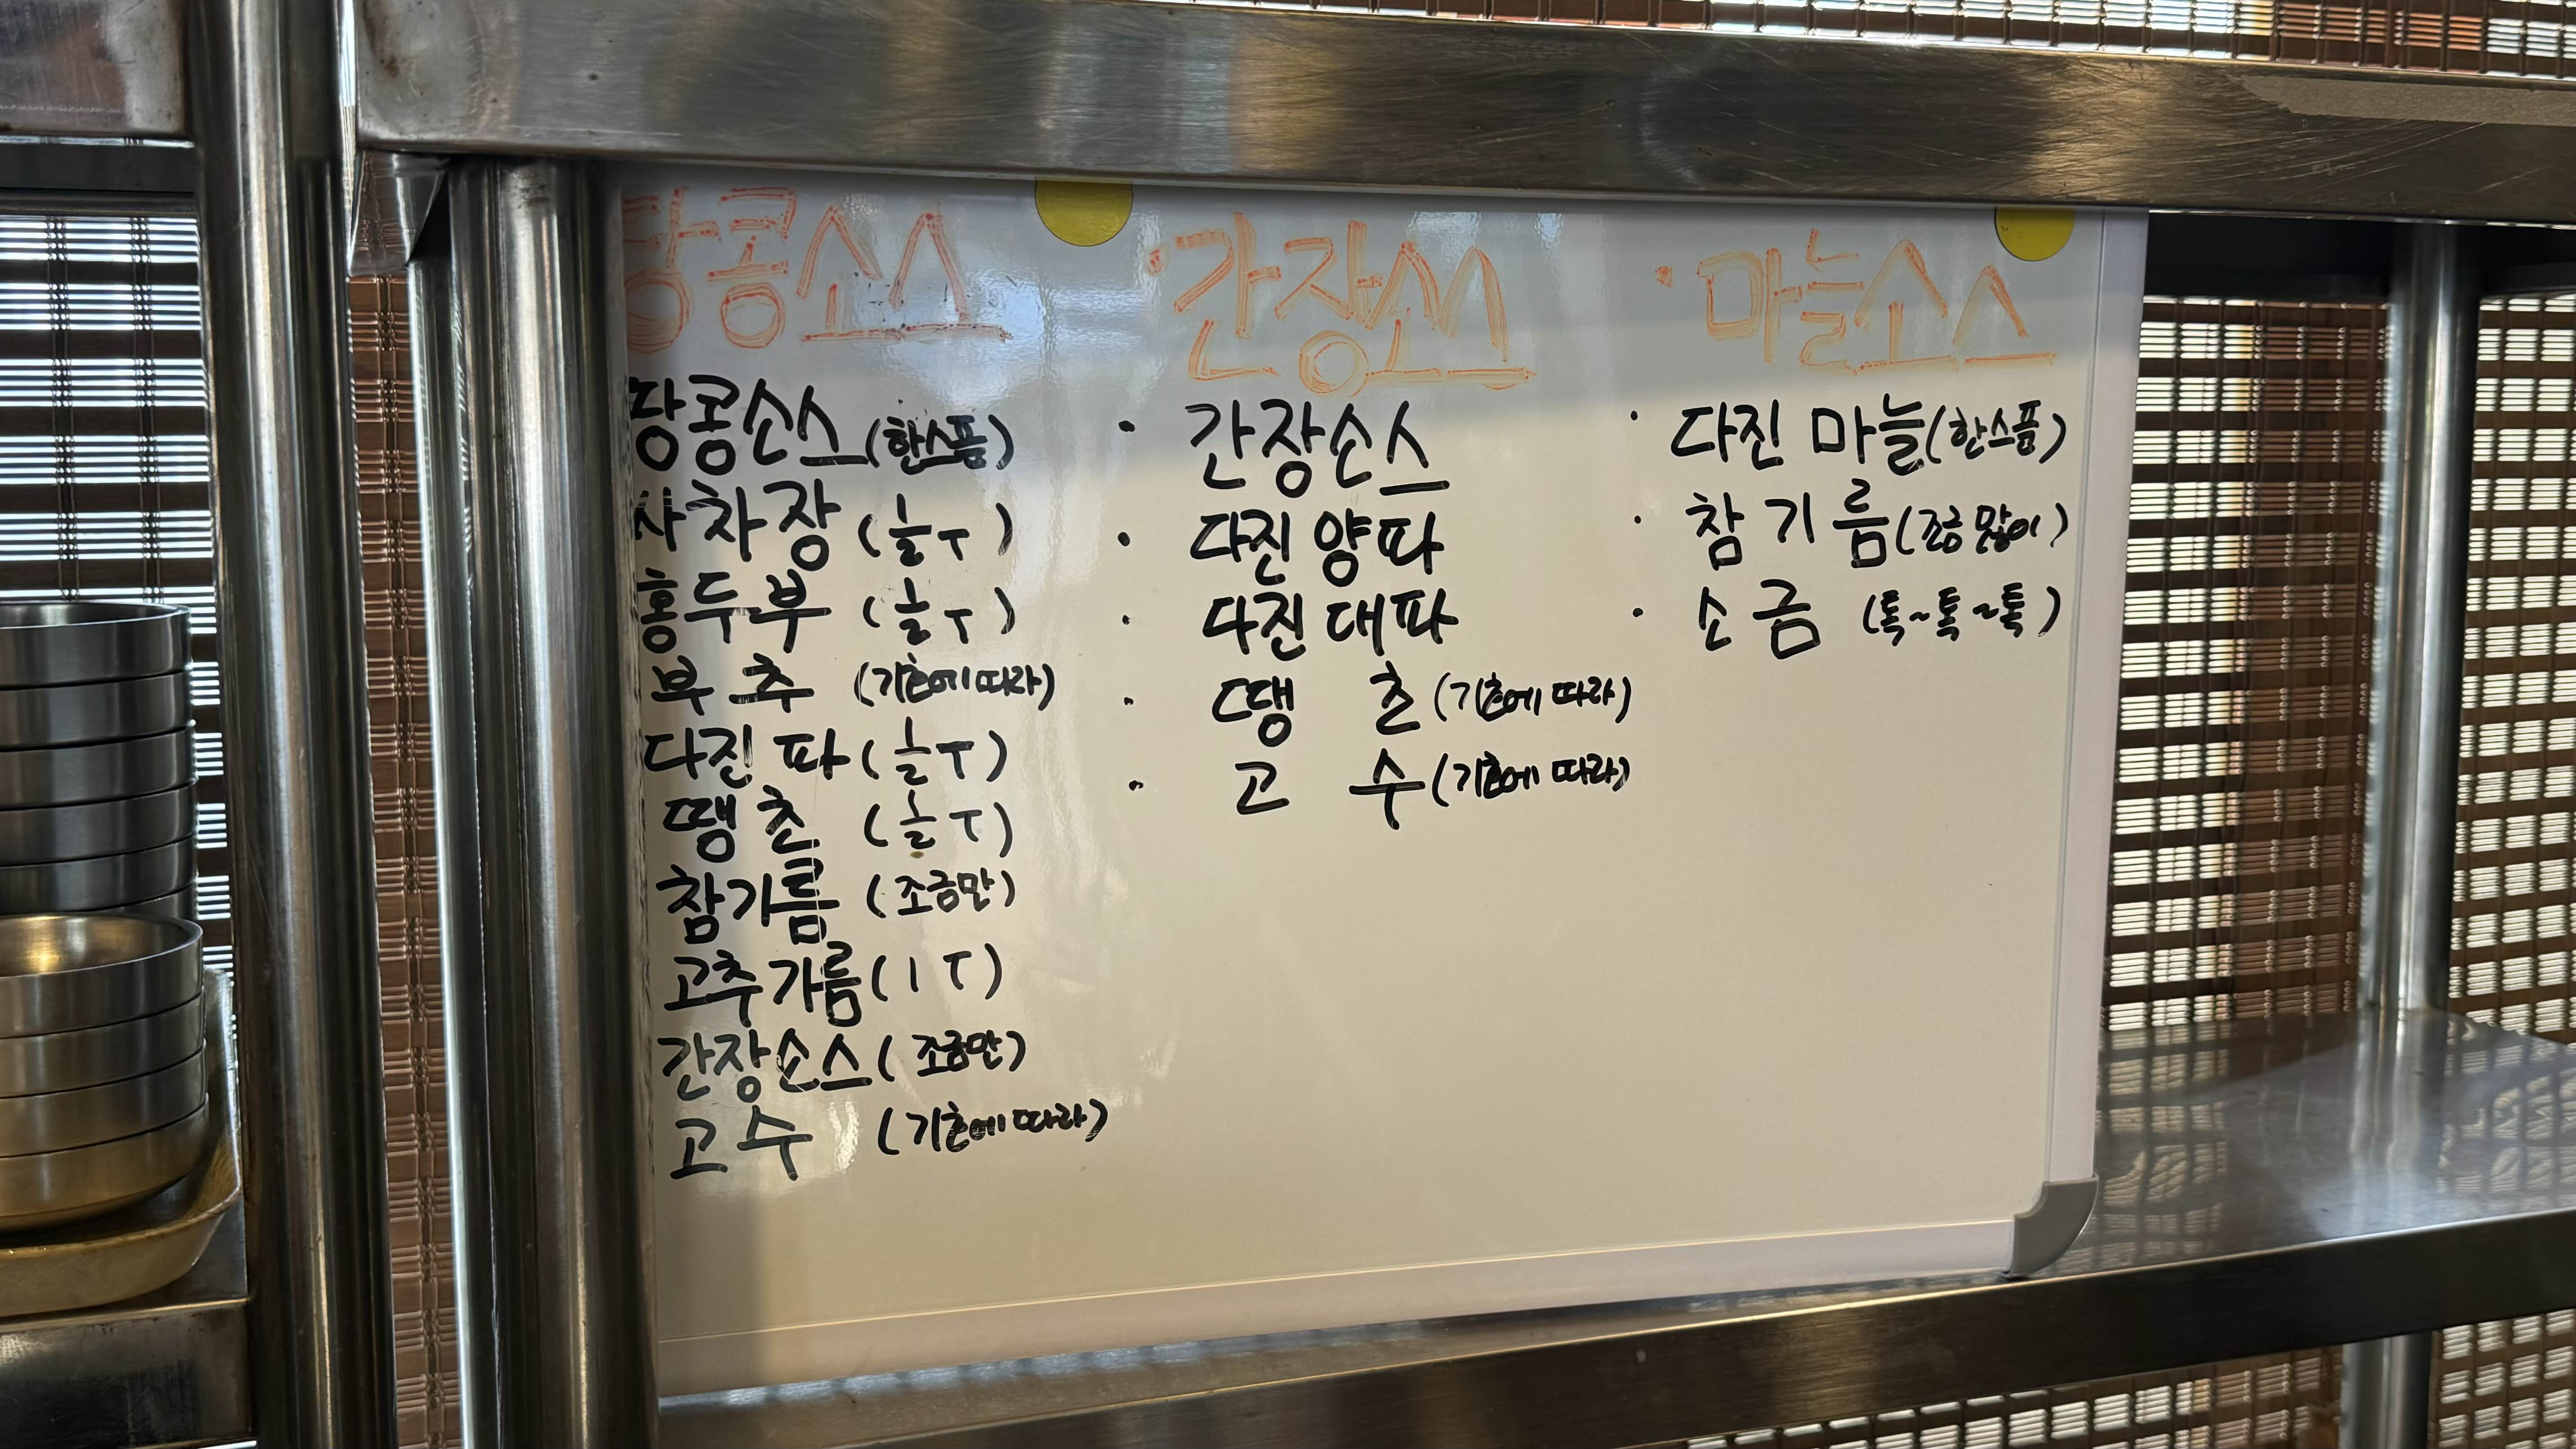 땅콩소스
땅콩소스 (한스픔)
사차장 (½T)
홍두부 (½T)
부추 (기호에 따라)
다진 파 (½T)
땡초 (½T)
참기름 (조금만)
고추기름 (1T)
간장소스 (조금만)
고수 (기호에 따라)
· 간장소스
· 간장소스
· 다진 양파
· 다진 대파
· 땡초 (기호에 따라)
· 고수 (기호에 따라)
· 마늘소스
· 다진 마늘 (한스픔)
· 참기름 (조금 많이)
· 소금 (톡~톡~톡)